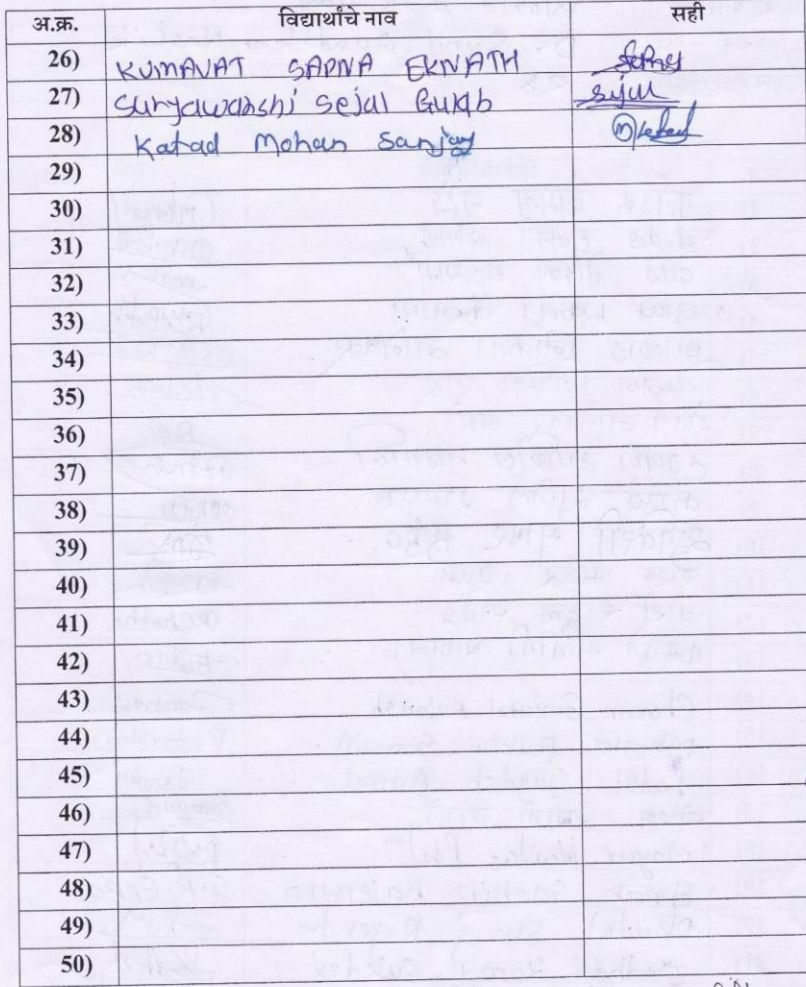 अ.क्र. विद्यार्थांचे नाव सही
26) KUMAVAT SAPNA EKNATH
27) Suryawanshi Sejal Gulab Sejal
28) Katad Mohan Sanjay
29)
30)
31)
32)
33)
34)
35)
36)
37)
38)
39)
40)
41)
42)
43)
44)
45)
46)
47)
48)
49)
50)